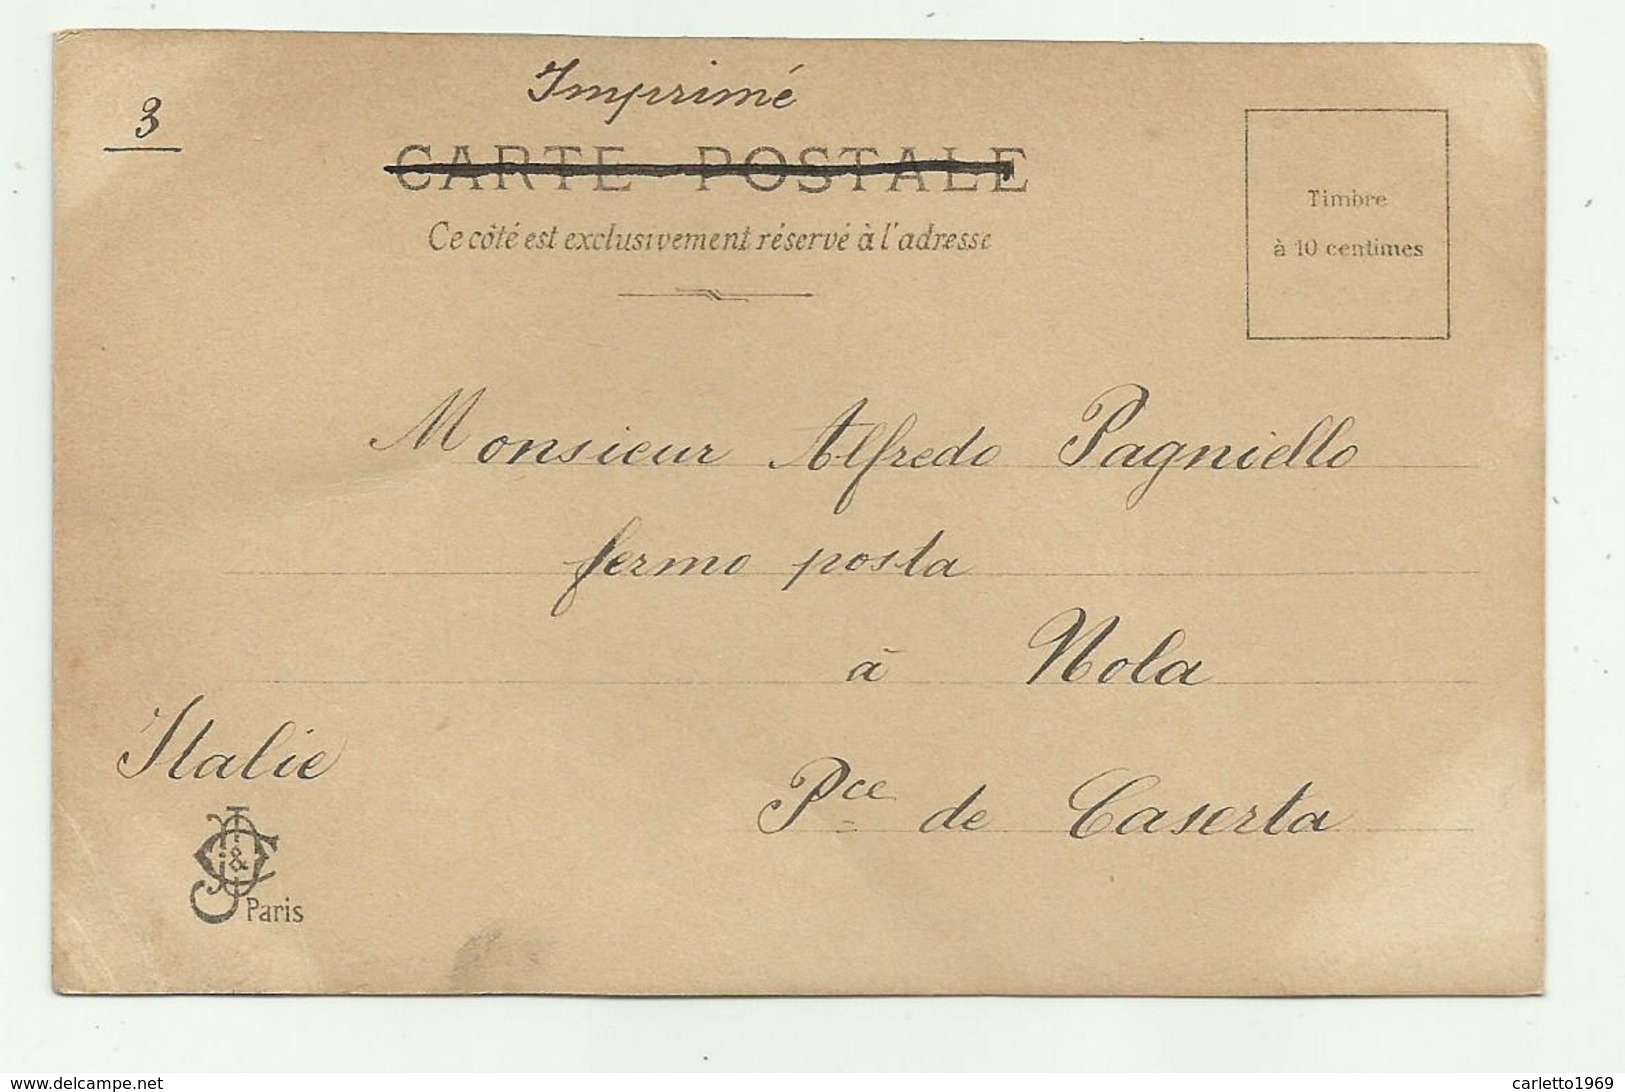 Imprimé
3
CARTE POSTALE
Ce côté est exclusivement réservé à l'adresse
Timbre
à 10 centimes
Monsieur Alfredo Pagniello
fermo posta
à Nola
Italie
Pce de Caserta
Paris
www.delcampe.net
carletto1969